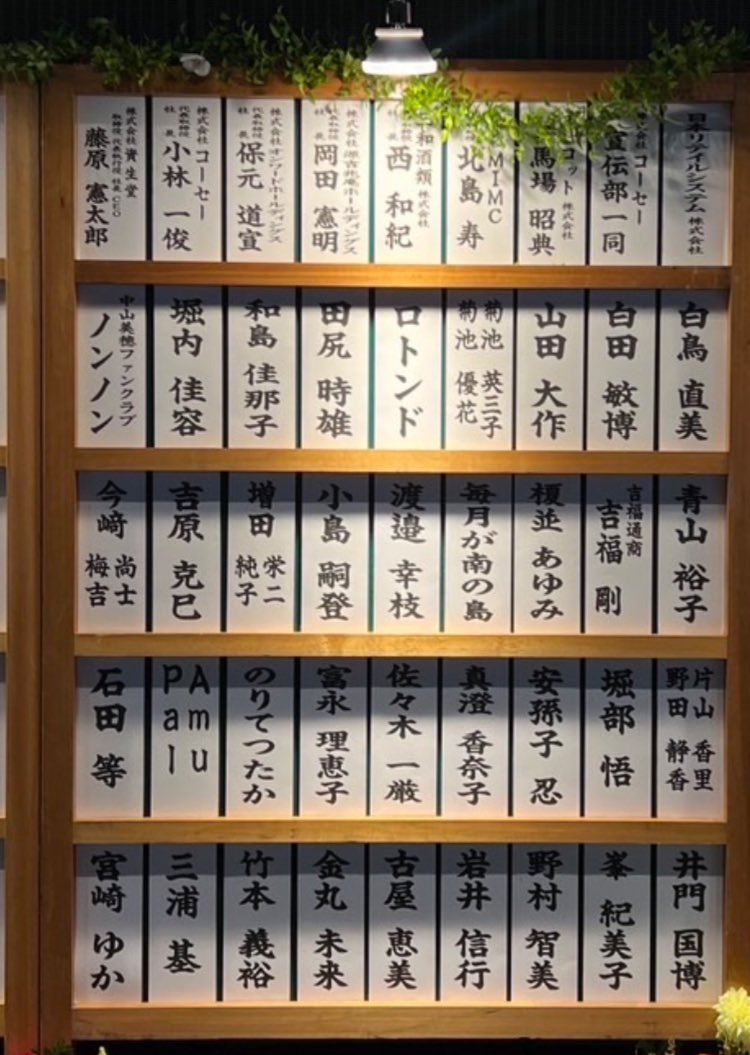 日本リテイルシステム 株式会社
コーセー
宣伝部一同
コット 株式会社
馬場 昭典
MIMC
北島 寿
和酒類 株式会社
西 和紀
株式会社 源吉兆庵ホールディングス
代表取締役 社長
岡田 憲明
株式会社 オンワードホールディングス
代表取締役 社長
保元 道宣
株式会社 コーセー
代表取締役 社長
小林 一俊
株式会社 資生堂
取締役 代表執行役 社長 CEO
藤原 憲太郎
白鳥 直美
白田 敏博
山田 大作
菊池 英三子
菊池 優花
ロトンド
田尻 時雄
和島 佳那子
堀内 佳容
中山美穂ファンクラブ
ノンノン
青山 裕子
吉福通商
吉福 剛
榎並 あゆみ
毎月が南の島
渡邉 幸枝
小島 嗣登
増田 栄二
純子
吉原 克巳
今﨑 尚士
梅吉
片山 香里
野田 静香
堀部 悟
安孫子 忍
真澄 香奈子
佐々木 一厳
富永 理恵子
のりてつたか
Amu
Pal
石田 等
井門 国博
峯 紀美子
野村 智美
岩井 信行
古屋 恵美
金丸 未来
竹本 義裕
三浦 基
宮﨑 ゆか